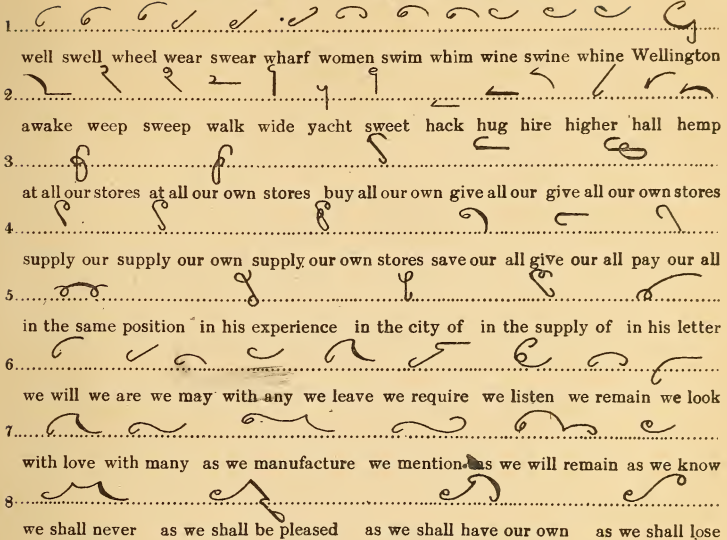 1
well swell wheel wear swear wharf women swim whim wine swine whine Wellington
2
awake weep sweep walk wide yacht sweet hack hug hire higher hall hemp
3
at all our stores at all our own stores buy all our own give all our give all our own stores
4
supply our supply our own supply our own stores save our all give our all pay our all
5
in the same position in his experience in the city of in the supply of in his letter
6
we will we are we may with any we leave we require we listen we remain we look
7
with love with many as we manufacture we mention as we will remain as we know
8
we shall never as we shall be pleased as we shall have our own as we shall lose